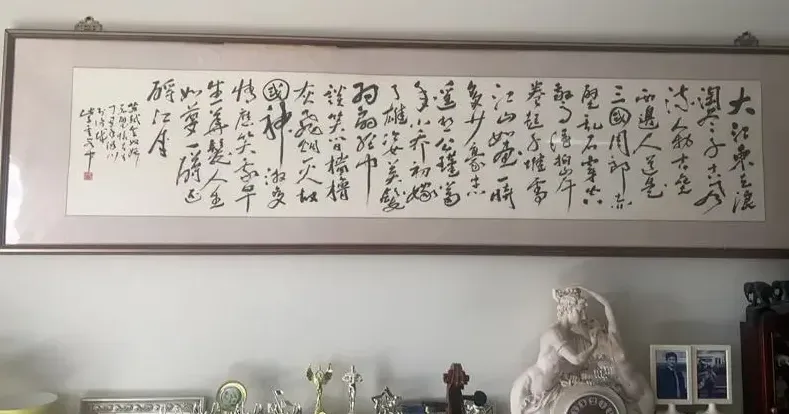 大江東去浪
淘盡千古風
流人物故壘
西邊人道是
三國周郎赤
壁亂石穿空
驚濤拍岸
卷起千堆雪
江山如畫一時
多少豪杰
遥想公瑾當
年小喬初嫁
了雄姿英發
羽扇綸巾
談笑間檣櫓
灰飛烟灭故
國神游多
情應笑我早
生華髮人生
如夢一樽還
酹江月
蘇軾念奴嬌